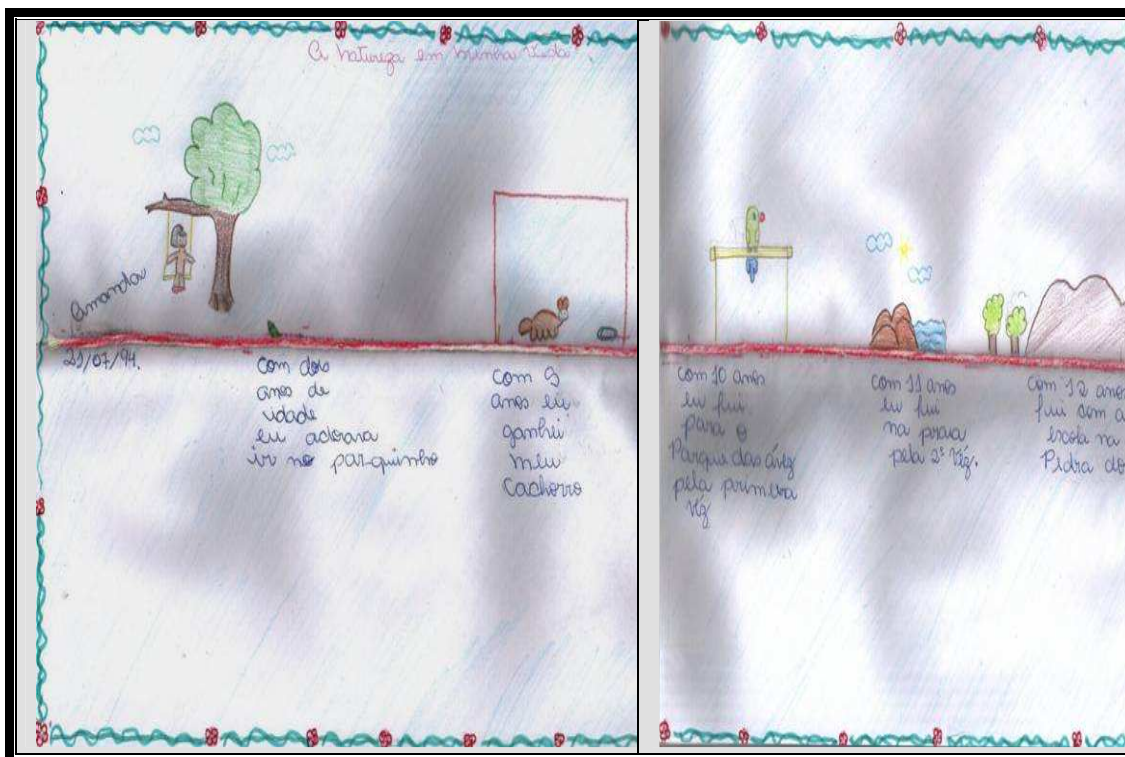 A natureza em minha vida
Amanda
21/07/94.
com dois
anos de
idade
eu adorava
ir no parquinho
com 9
anos eu
ganhei
meu
Cachorro
com 10 anos
eu fui
para o
Parque das
pela primeira
vez
com 11 anos
eu fui
na praia
pela 2ª vez.
com 12 anos
fui com a
escola na
Pedra do